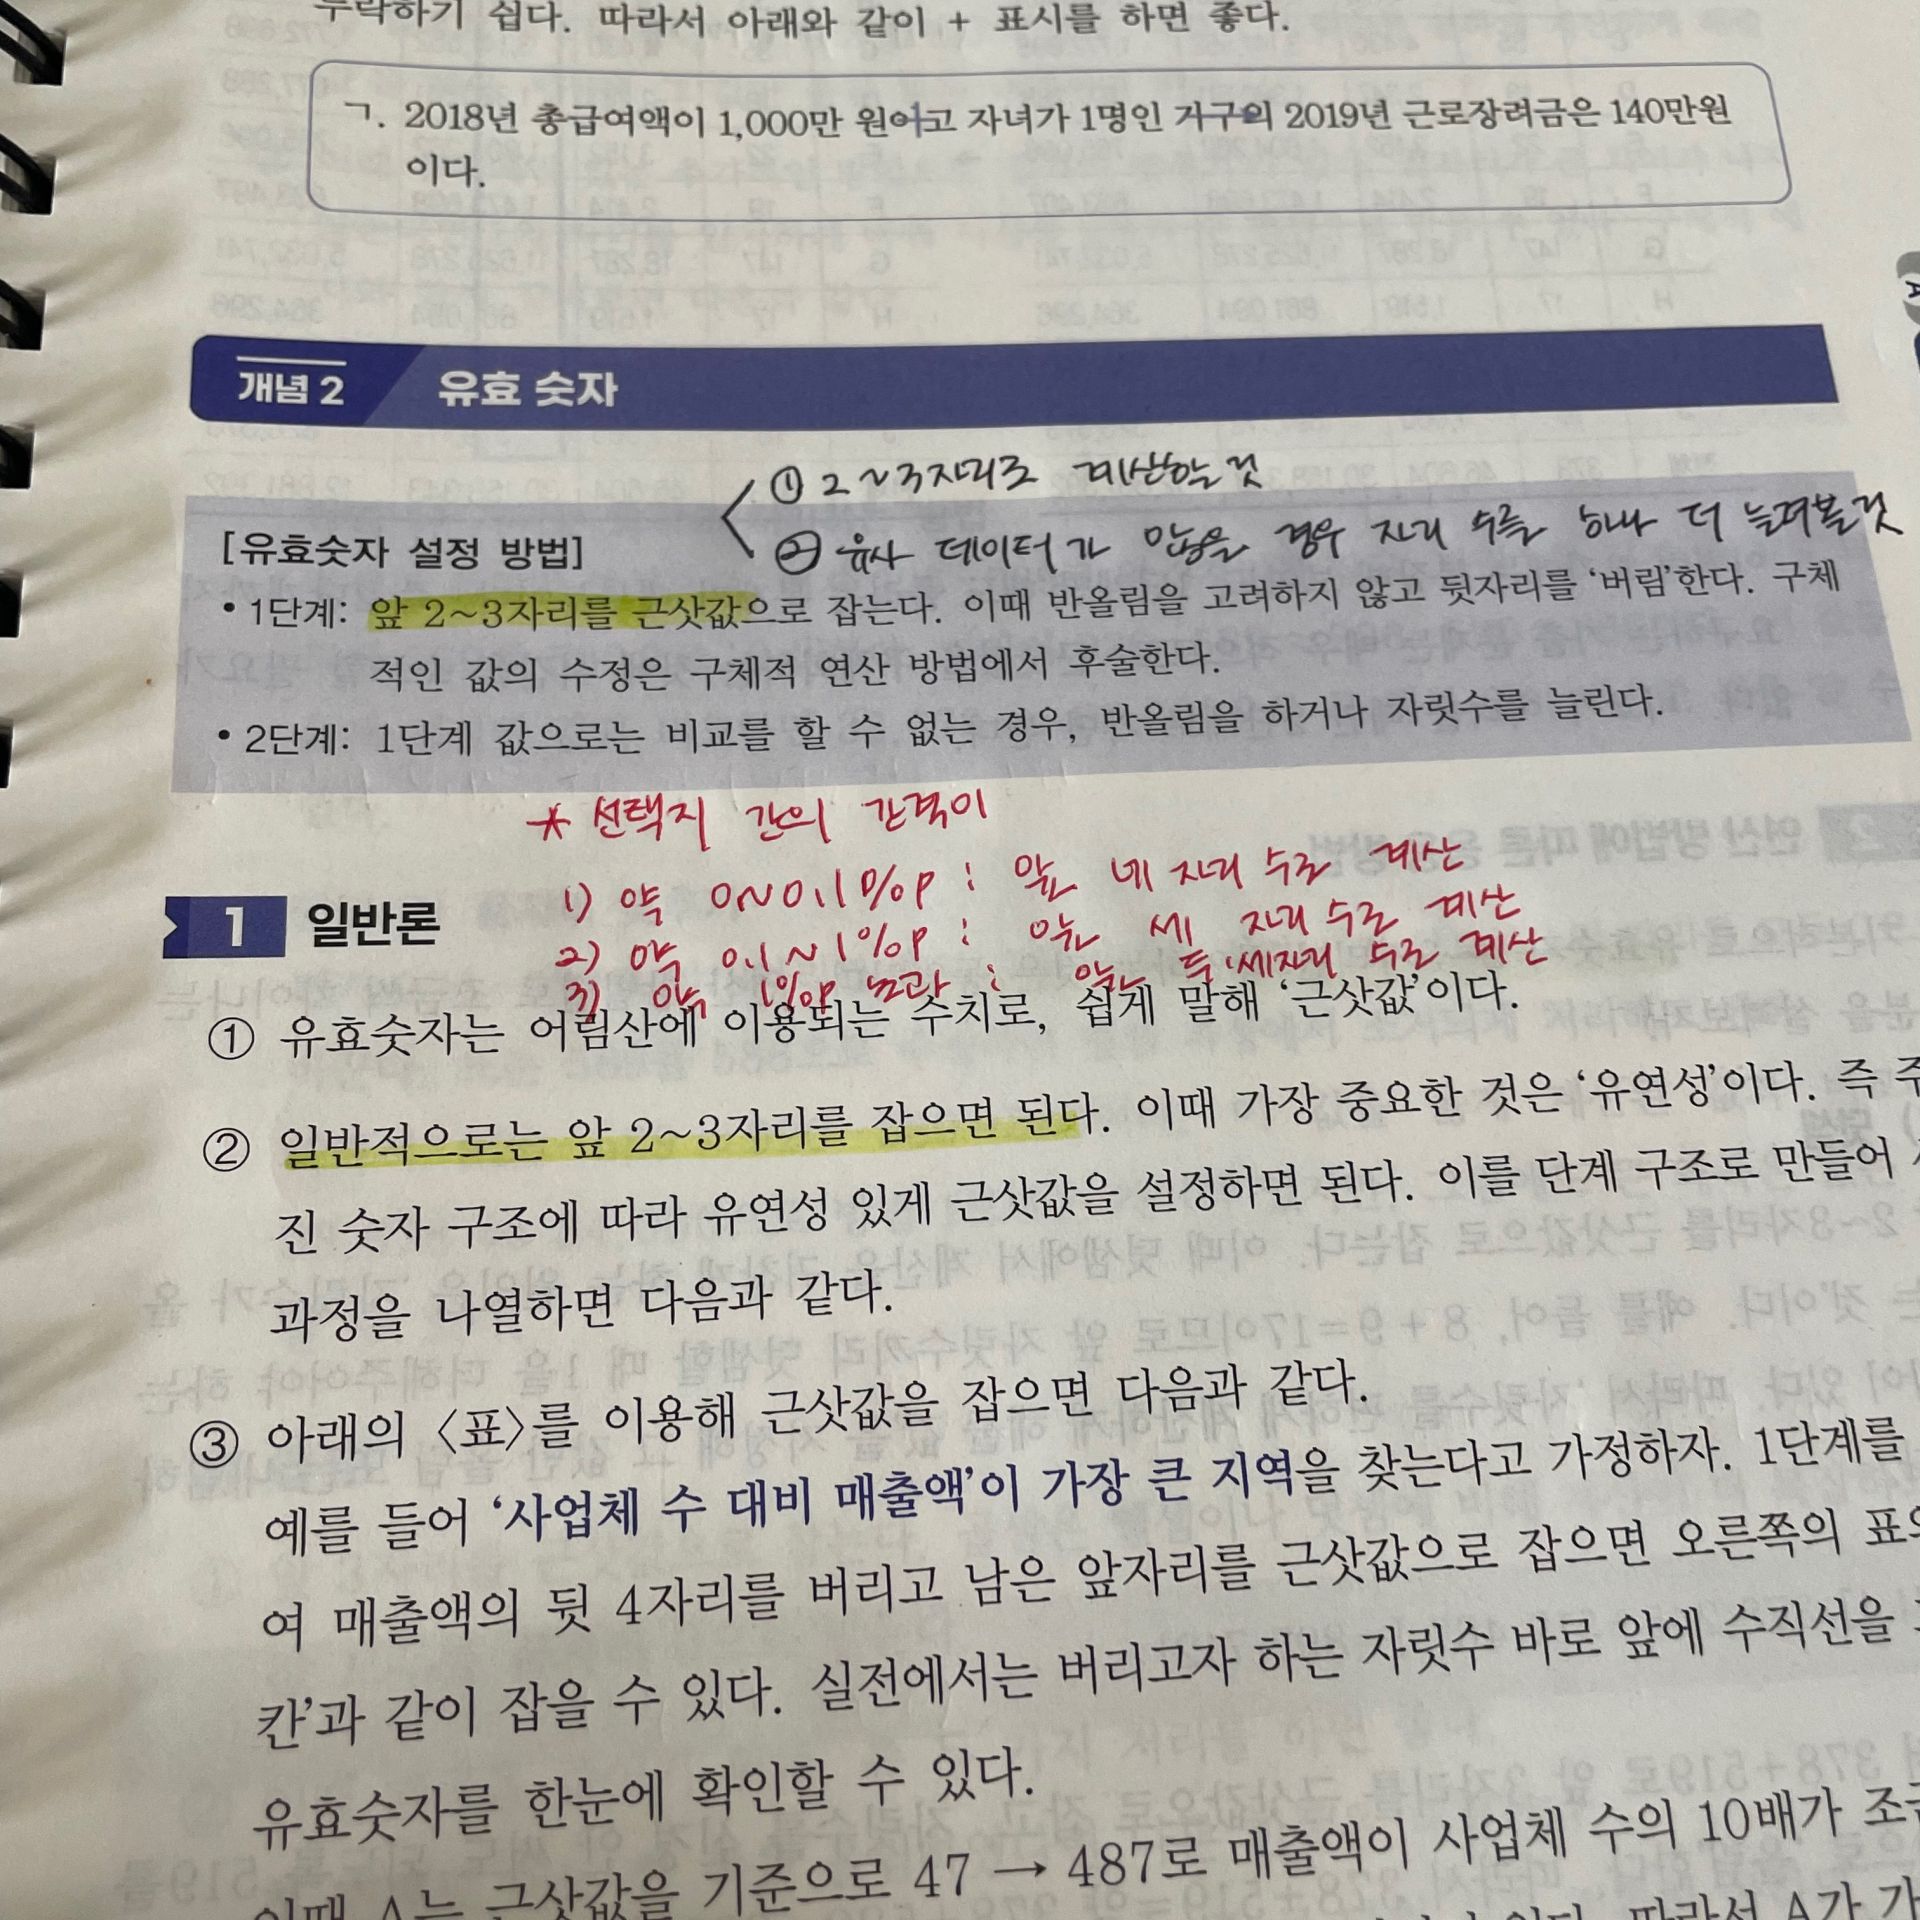 누락하기 쉽다. 따라서 아래와 같이 + 표시를 하면 좋다.
ㄱ. 2018년 총급여액이 1,000만 원이고 자녀가 1명인 가구의 2019년 근로장려금은 140만원
이다.
개념 2 유효 숫자
① 2~3자리로 계산할 것
② 유사 데이터가 많을 경우 자리 수를 하나 더 늘려볼 것
[유효숫자 설정 방법]
• 1단계: 앞 2~3자리를 근삿값으로 잡는다. 이때 반올림을 고려하지 않고 뒷자리를 ‘버림’한다. 구체
적인 값의 수정은 구체적 연산 방법에서 후술한다.
• 2단계: 1단계 값으로는 비교를 할 수 없는 경우, 반올림을 하거나 자릿수를 늘린다.
* 선택지 간의 간격이
1) 약 0~0.1%p : 앞 네 자리 수로 계산
2) 약 0.1~1%p : 앞 세 자리 수로 계산
3) 약 1%p 초과 : 앞 두·세자리 수로 계산
1 일반론
① 유효숫자는 어림산에 이용되는 수치로, 쉽게 말해 ‘근삿값’이다.
② 일반적으로는 앞 2~3자리를 잡으면 된다. 이때 가장 중요한 것은 ‘유연성’이다. 즉 주
진 숫자 구조에 따라 유연성 있게 근삿값을 설정하면 된다. 이를 단계 구조로 만들어
과정을 나열하면 다음과 같다.
③ 아래의 〈표〉를 이용해 근삿값을 잡으면 다음과 같다.
예를 들어 ‘사업체 수 대비 매출액’이 가장 큰 지역을 찾는다고 가정하자. 1단계를
여 매출액의 뒷 4자리를 버리고 남은 앞자리를 근삿값으로 잡으면 오른쪽의 표의
칸’과 같이 잡을 수 있다. 실전에서는 버리고자 하는 자릿수 바로 앞에 수직선을
유효숫자를 한눈에 확인할 수 있다.
이때 A는 근삿값을 기준으로 47 → 487로 매출액이 사업체 수의 10배가 조금
따라서 A가 가